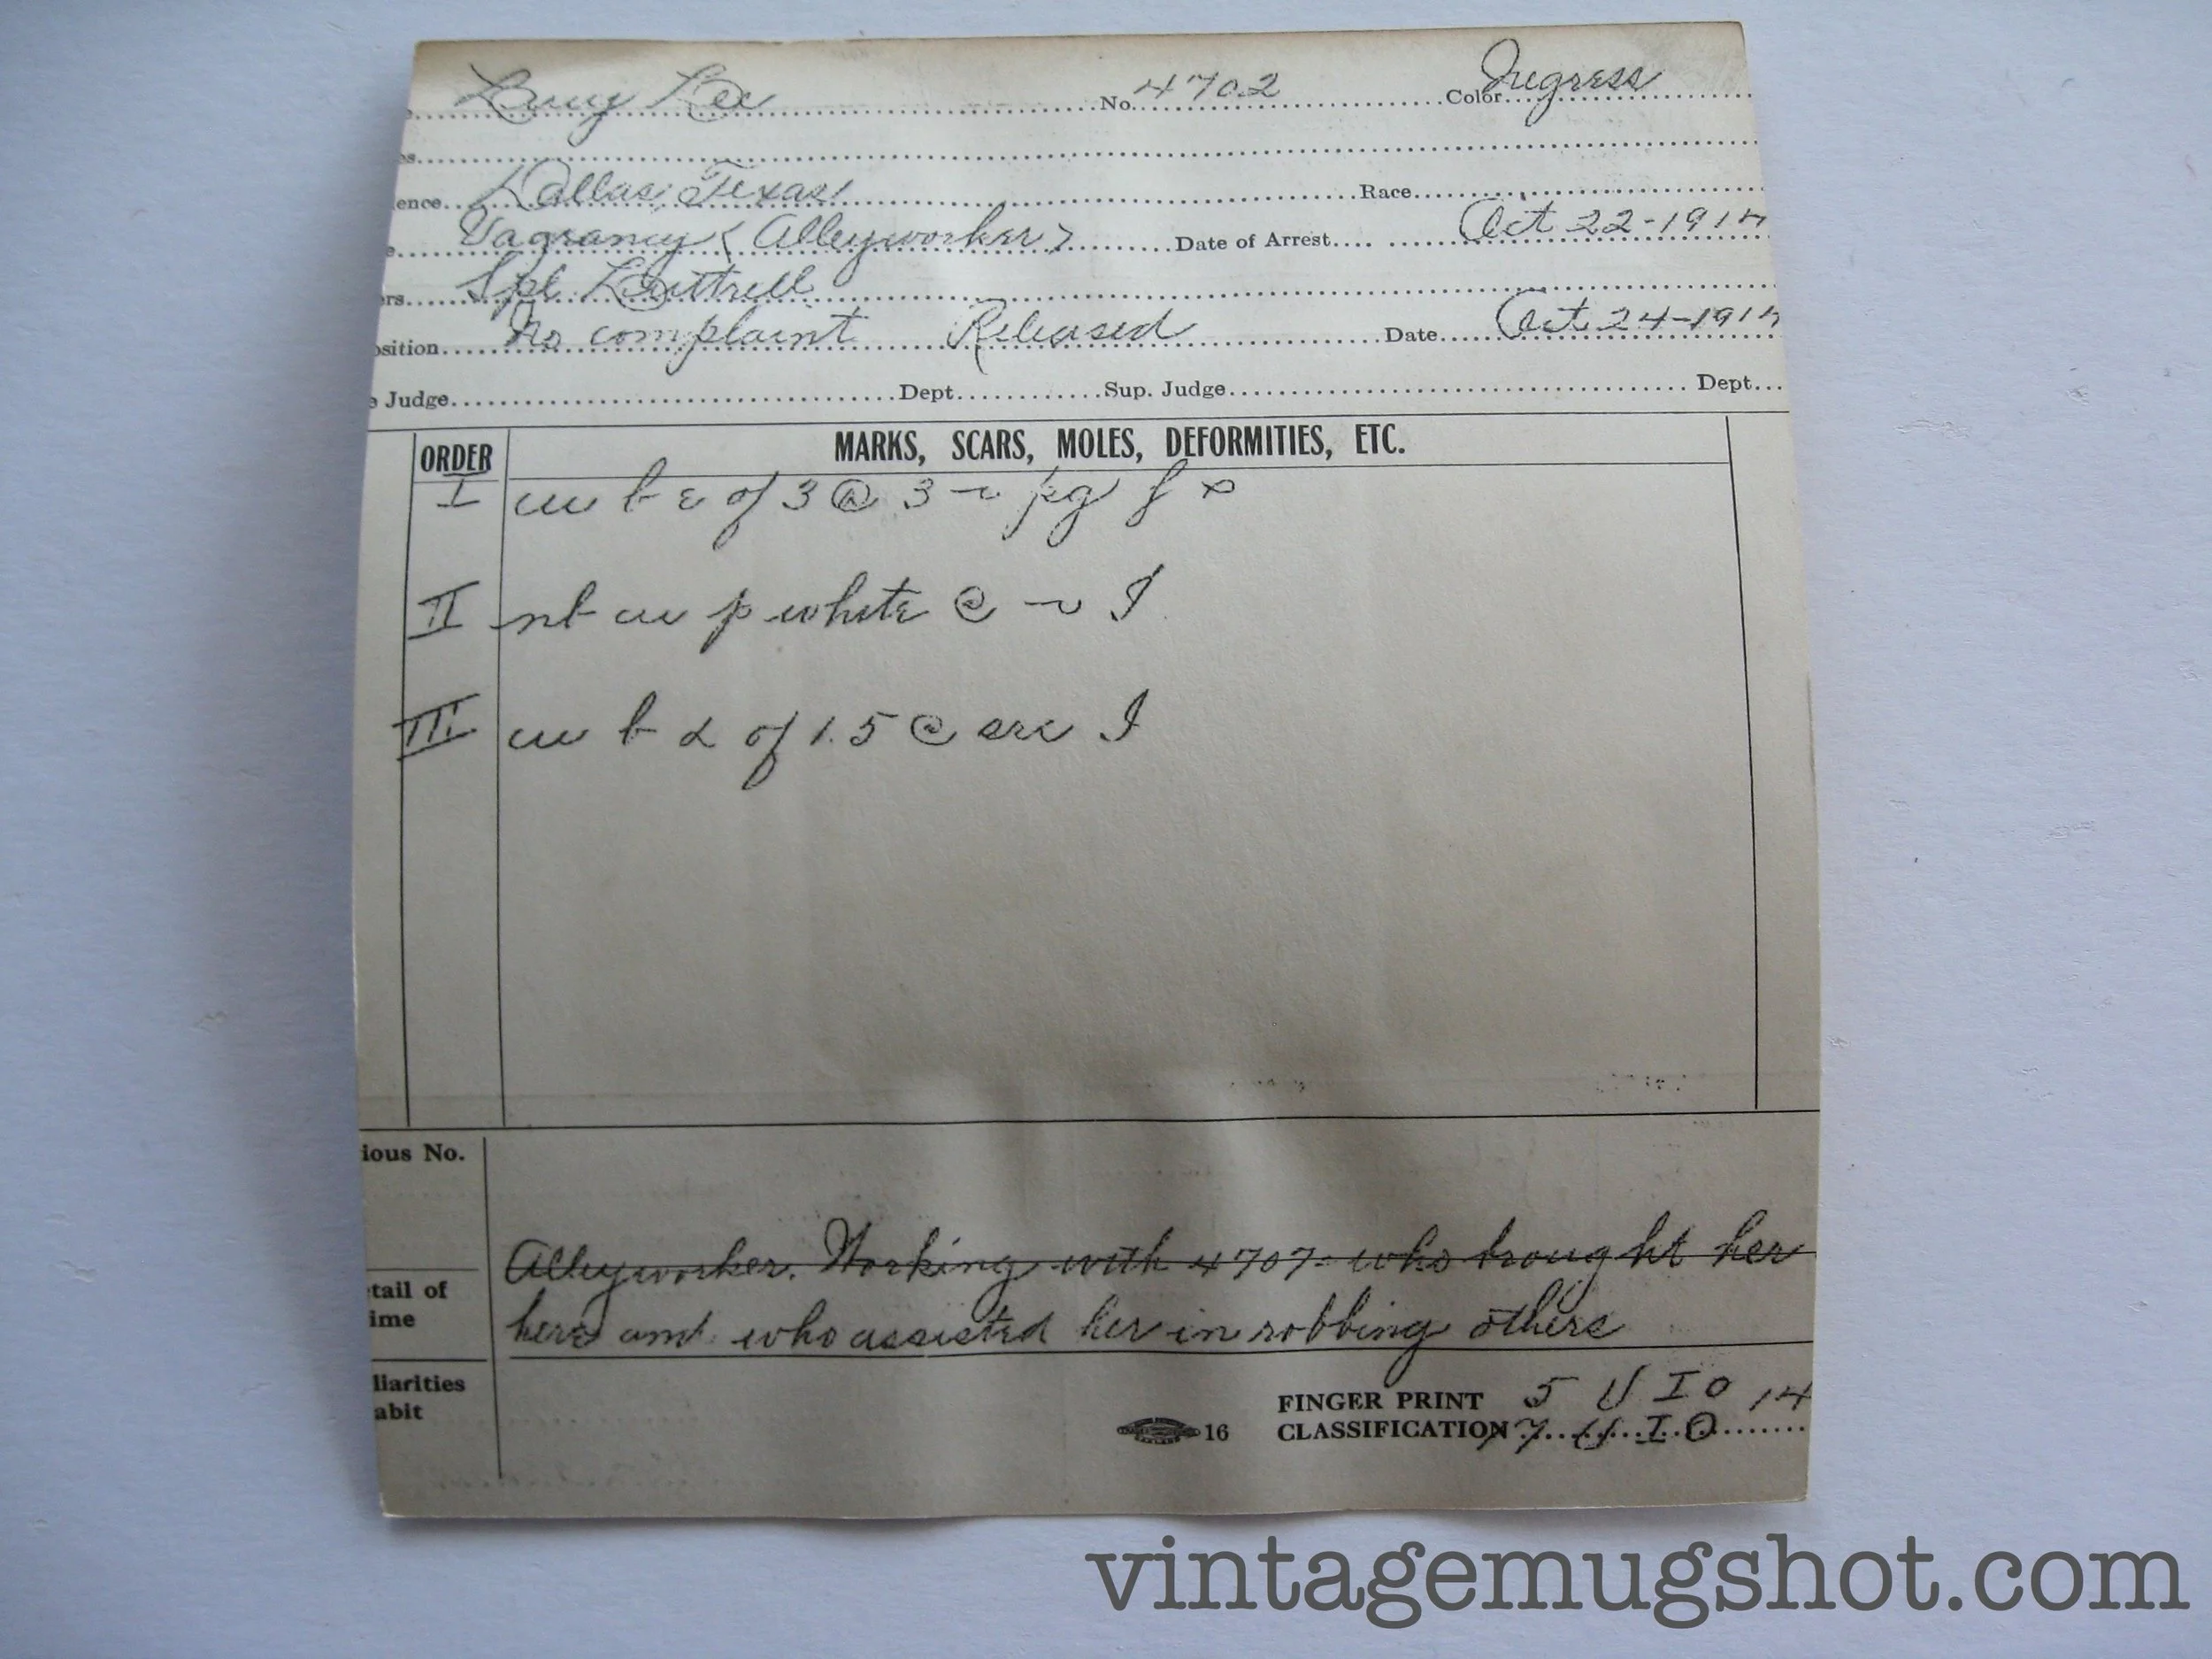 Lucy Lee No. 4702 Color Negress
es
ence Dallas, Texas Race
e Vagrancy (Alleyworker) Date of Arrest Oct 22-1917
ers Spl Luttrell
osition No complaint Released Date Oct 24-1917
e Judge Dept Sup. Judge Dept
ORDER MARKS, SCARS, MOLES, DEFORMITIES, ETC.
I cu b ε of 3 @ 3 pg f
II nb cu p white @ I
III cu b of 1.5 @ arc I
ious No.
Alleyworker. Working with 4707- who brought her
etail of
ime here and who assisted her in robbing others
liarities
abit
FINGER PRINT 5 U I O 14
16 CLASSIFICATION 17 U I O
vintagemugshot.com